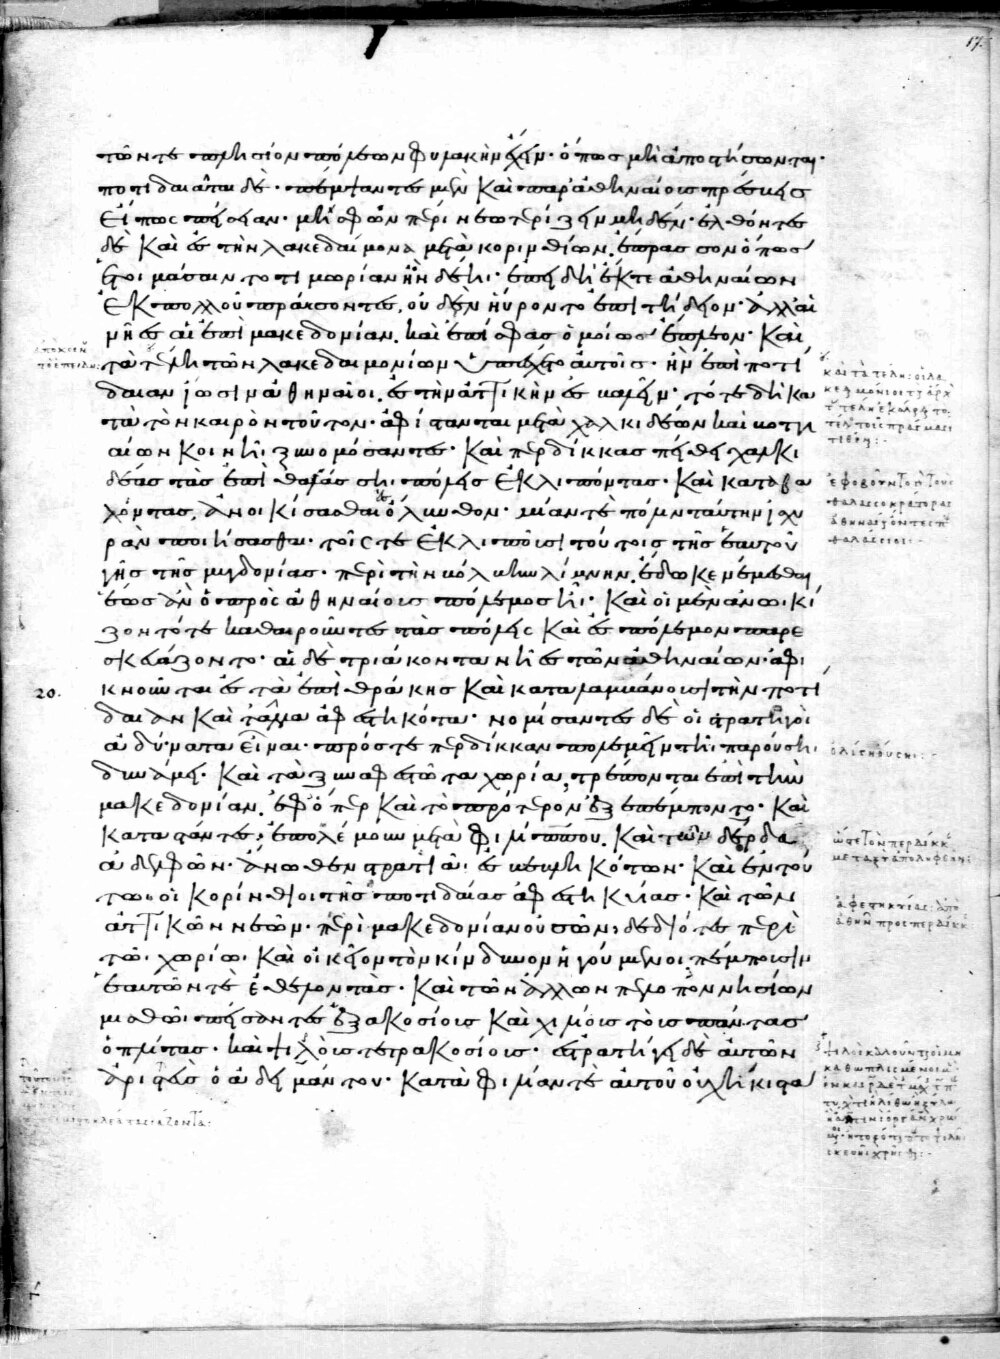 17
τῶν τε πλησίον πόλεων φυλακὴν ἔχειν· ὅπως μὴ ἀποστήσωνται·
ποτιδαιᾶται δὲ· πέμψαντες μὲν καὶ παρ' ἀθηναίους πρέσβεις
εἴ πως πείσειαν· μὴ σφῶν πέρι νεωτερίζειν μηδέν· ἐλθόντες
δὲ καὶ ἐς τὴν λακεδαίμονα μετὰ κορινθίων, ἔπρασσον ὅπως
ἑτοιμάσαιντο τιμωρίαν ἢν δέηι· ἐπειδὴ ἔκ τε ἀθηναίων
ἐκ πολλοῦ πράσσοντες, οὐδὲν ηὕροντο ἐπιτήδειον· ἀλλ' αἱ
νῆες αἱ ἐπὶ μακεδονίαν, καὶ ἐπὶ σφᾶς ὁμοίως ἔπλεον· καὶ
τὰ τέλη τῶν λακεδαιμονίων ὑπέσχετο αὐτοῖς· ἢν ἐπὶ ποτί
δαιαν ἴωσιν ἀθηναῖοι, ἐς τὴν ἀττικὴν ἐσβαλεῖν· τότε δὴ κα
τὰ τὸν καιρὸν τοῦτον· ἀφίστανται μετὰ χαλκιδέων καὶ βοττι
αίων κοινῆι ξυνομόσαντες· καὶ περδίκκας πείθει χαλκι
δέας τὰς ἐπὶ θαλάσσηι πόλεις ἐκλιπόντας· καὶ καταβα
λόντας, ἀνοικίσασθαι ἐς ὄλυνθον· μίαν τε πόλιν ταύτην ἰσχυ
ρὰν ποιήσασθαι· τοῖς τε ἐκλιποῦσι τούτοις τῆς ἑαυτοῦ
γῆς τῆς μυγδονίας· περὶ τὴν βόλβην λίμνην, ἔδωκε νέμεσθαι
ἕως ἂν ὁ πρὸς ἀθηναίους πόλεμος ἦι· καὶ οἱ μὲν ἀνωικί
ζοντό τε καθαιροῦντες τὰς πόλεις καὶ ἐς πόλεμον παρε
σκευάζοντο· αἱ δὲ τριάκοντα νῆες τῶν ἀθηναίων· ἀφι
20.
κνοῦνται ἐς τὰ ἐπὶ θράκης καὶ καταλαμβάνουσι τὴν ποτί
δαιαν καὶ τἆλλα ἀφεστηκότα· νομίσαντες δὲ οἱ στρατηγοὶ
ἀδύνατα εἶναι· πρός τε περδίκκαν πολεμεῖν τῆι παρούσηι
δυνάμει· καὶ τὰ ξυναφεστῶτα χωρία, τρέπονται ἐπὶ τὴν
μακεδονίαν, ἐφ' ὅπερ καὶ τὸ πρότερον ἐξεπέμποντο· καὶ
καταστάντες, ἐπολέμουν μετὰ φιλίππου, καὶ τῶν δέρδα
ἀδελφῶν· ἄνωθεν στρατιᾶι ἐσβεβληκότων· καὶ ἐν τού
τωι οἱ κορίνθιοι τῆς ποτιδαίας ἀφεστηκυίας· καὶ τῶν
ἀττικῶν νεῶν· περὶ μακεδονίαν οὐσῶν, δεδιότες περὶ
τῶι χωρίωι καὶ οἰκεῖον τὸν κίνδυνον ἡγούμενοι, πέμπουσιν
ἑαυτῶν τε ἐθελοντάς· καὶ τῶν ἄλλων πελοποννησίων
μισθῶι πείσαντες ἑξακοσίους καὶ χιλίους τοὺς πάντας
ὁπλίτας· καὶ ψιλοὺς τετρακοσίους· ἐστρατήγει δὲ αὐτῶν
ἀριστεὺς ὁ ἀδειμάντου· κατὰ φιλίαν τε αὐτοῦ οὐχ ἥκιστα